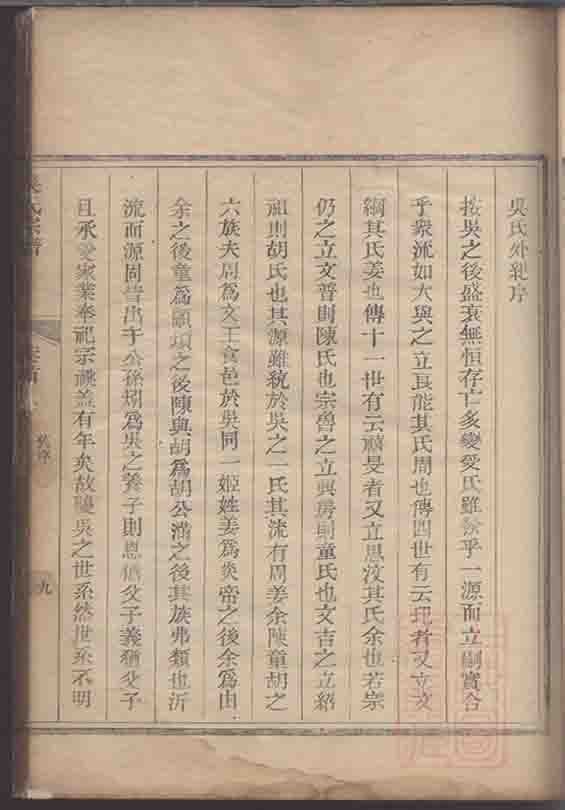 吳氏外紀序
按吳之後盛衰無恒存亡多變受氏雖于一源而立嗣實合
乎衆流如大與之立長能其氏周也傳四世有云玘者又立文
綱其氏姜也傳十一世有云禧旻者又立思汶其氏余也若宗
仍之立文普則陳氏也宗魯之立興房則童氏也文吉之立紹
祖則胡氏也其源雖統於吳之一氏其流有周姜余陳童胡之
六族夫周爲文王食邑於吳同一姬姓姜爲炎帝之後余爲由
余之後童爲顓頊之後陳與胡爲胡公滿之後其族弗類也沂
流而源周皆出于公孫矧爲吳之養子則恩猶父子義猶父子
且承受家業奉祀宗祧盖有年矣故隨吳之世系然世系不明
吳氏宗譜
卷首
舊序
九